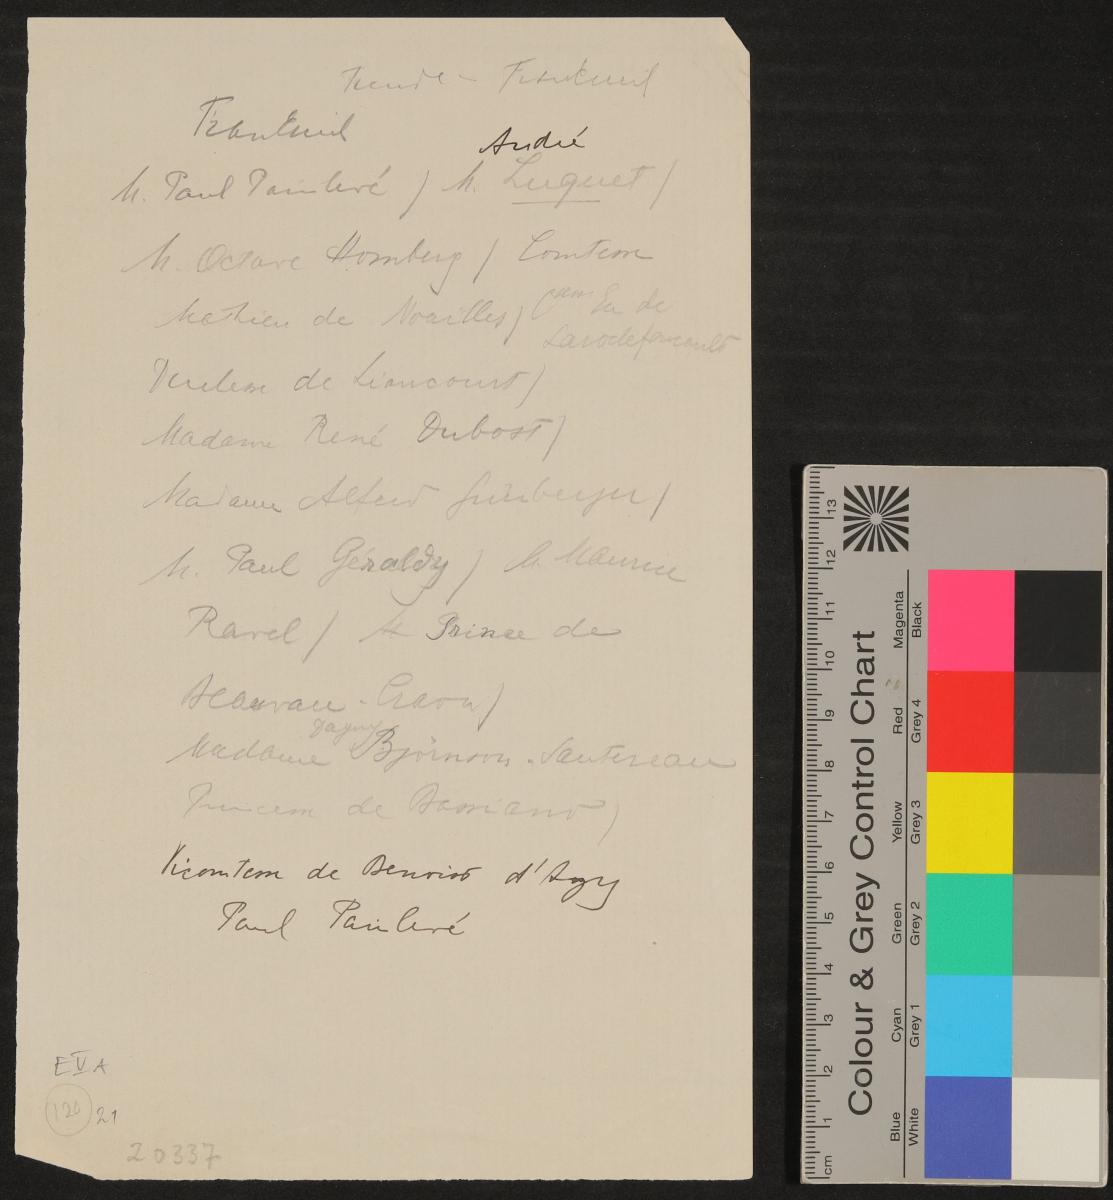 Franteuil
André
M. Paul Painlevé / M. Luguet /
M. Octave Homberg / Comtesse
Mathieu de Noailles /
de
Larochefoucault
de Liancourt /
Madame René Dubost /
Madame Alfred /
M. Paul Géraldy / M. Maurice
Ravel / Le Prince de
Beauvau-Craon /
Dagny
Madame Björnson-Sautereau
Princesse de /
Vicomtesse de Benoist d'Azy
Paul Painlevé
E V A
120 21
20337
Colour & Grey Control Chart
Blue Cyan Green Yellow Red Magenta
White Grey 1 Grey 2 Grey 3 Grey 4 Black
cm 1 2 3 4 5 6 7 8 9 10 11 12 13